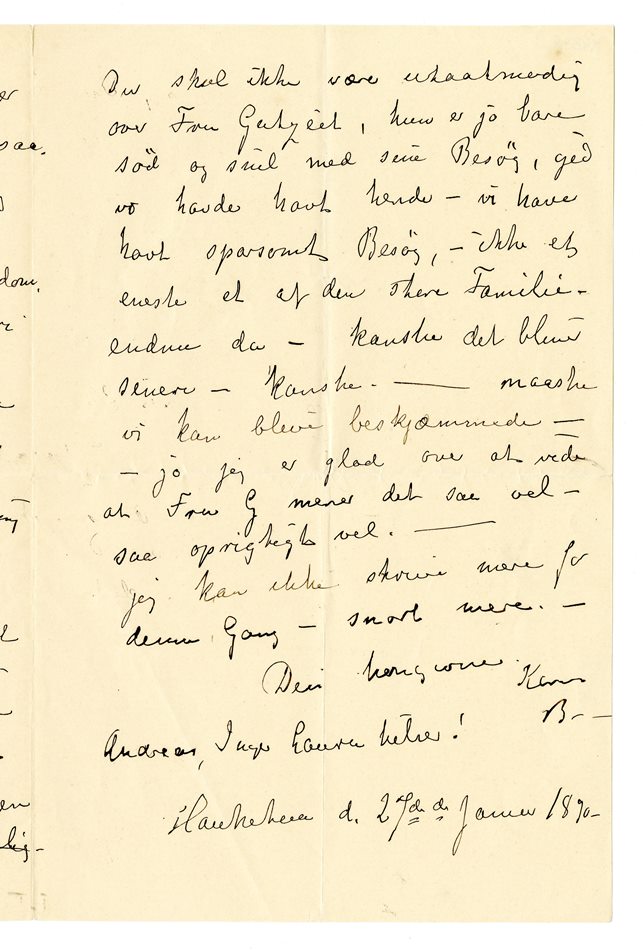 er
saa.
dom.
Du skal ikke være utaalmodig
over Fru , hun er jo bare
söd og snil med sine Besög, gid
vo havde havt hende – vi have
havt sparsomt Besög, – ikke et
eneste et af den store Familie –
endnu da – kanske det bliver
senere – kanske. — maaske
vi kan blive beskjæmmede –
– jo jeg er glad over at vide
at Fru G mener det saa vel –
saa oprigtigt vel. —
jeg kan ikke skrive mere for
denne Gang – snart mere. –
Din hengivne
Karen
B. –
Andreas, Inga Laura hilser!
d. 27de Januar 1890 –
en
lig –